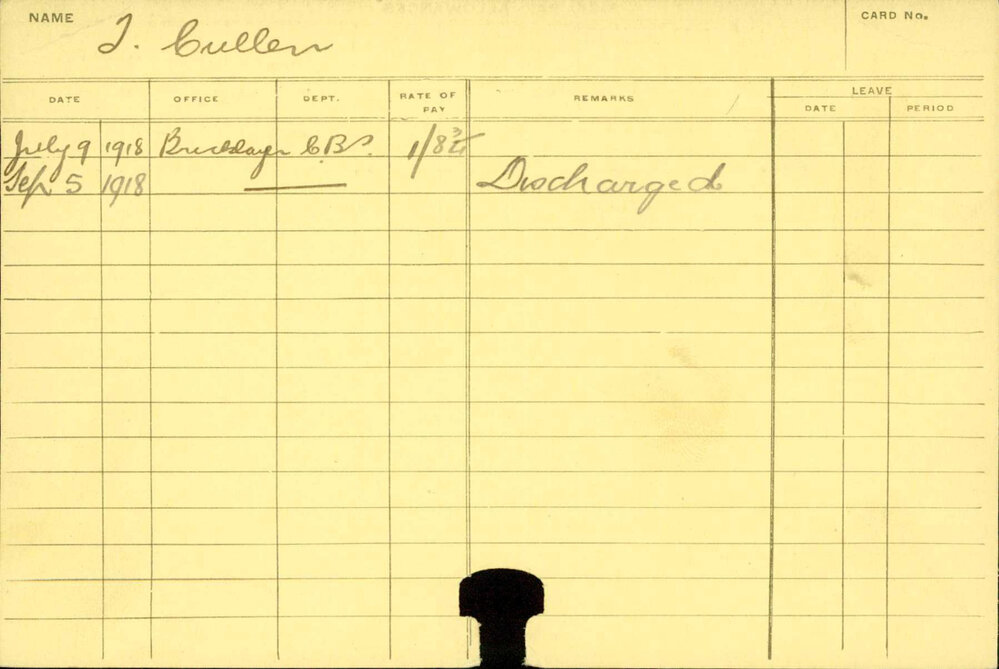 NAME T. Cullen CARD No.
DATE OFFICE DEPT. RATE OF PAY REMARKS LEAVE
DATE PERIOD
July 9 1918 Bricklayer C.B.S. 1/8¾
Sep 5 1918 Discharged